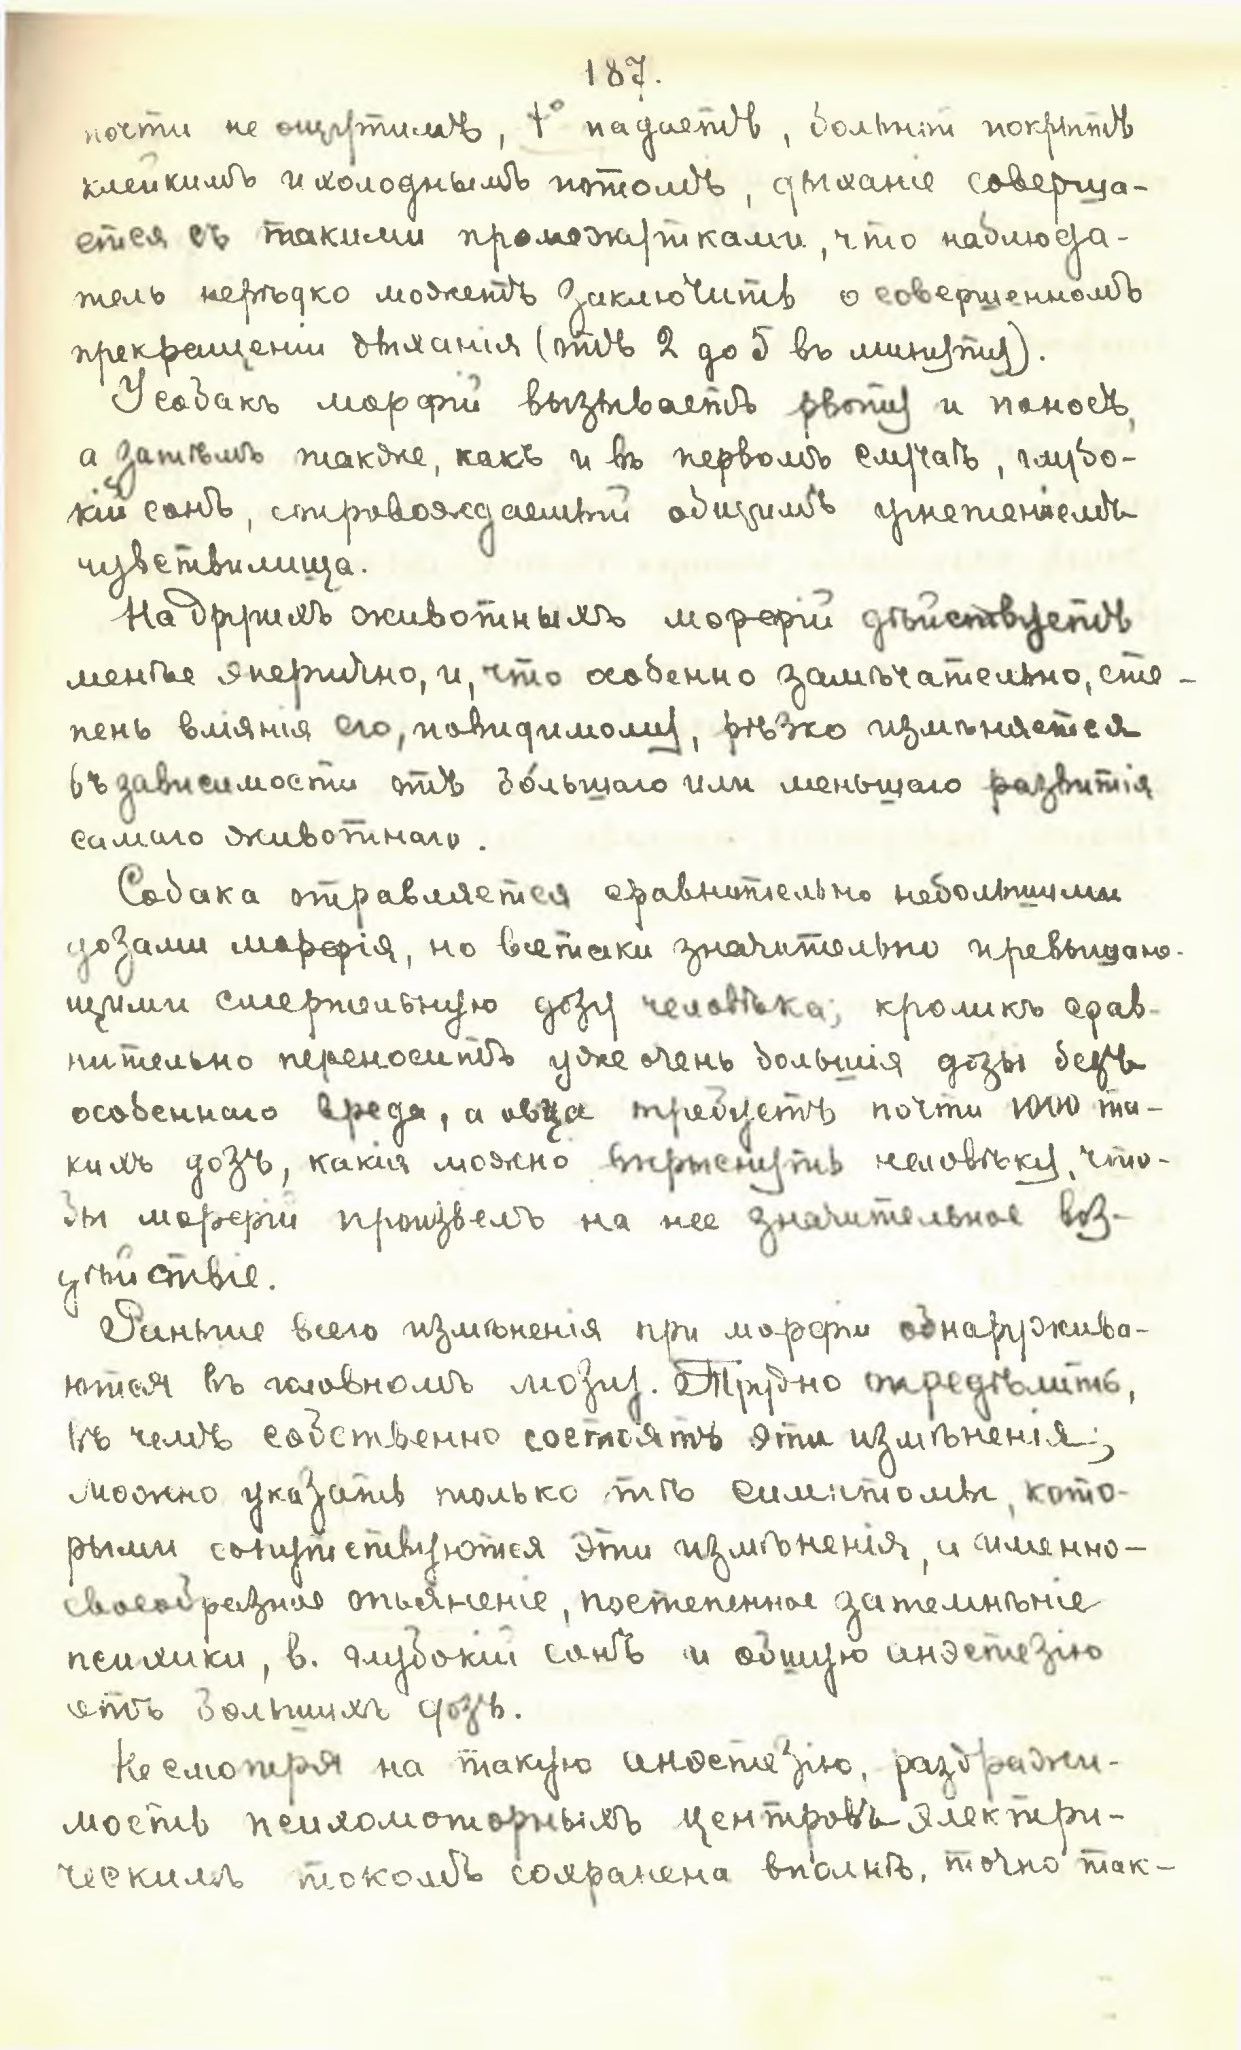 187.
почти не ощутимъ, t° падаетъ, больной покрытъ
клейкимъ и холоднымъ потомъ, дыханіе соверша-
ется съ такими промежутками, что наблюда-
тель нерѣдко можетъ заключить о совершенномъ
прекращеніи дыханія (отъ 2 до 5 въ минуту).
У собакъ морфій вызываетъ рвоту и поносъ,
а затѣмъ также, какъ и въ первомъ случаѣ, глубо-
кій сонъ, сопровождаемый общимъ угнетеніемъ
чувствилища.
На другихъ животныхъ морфій дѣйствуетъ
менѣе энергично, и, что особенно замѣчательно, сте-
пень вліянія его, повидимому, рѣзко измѣняется
въ зависимости отъ бо́льшаго или меньшаго развитія
самаго животнаго.
Собака отравляется сравнительно небольшими
дозами морфія, но всетаки значительно превышаю-
щими смертельную дозу человѣка; кроликъ срав-
нительно переноситъ уже очень большія дозы безъ
особеннаго вреда, а овца требуетъ почти 1000 та-
кихъ дозъ, какія можно впрыснуть человѣку, что-
бы морфій произвелъ на нее значительное воз-
дѣйствіе.
Раньше всего измѣненія при морфіи обнаружива-
ются въ головномъ мозгу. Трудно опредѣлить,
въ чемъ собственно состоятъ эти измѣненія;
можно указать только тѣ симптомы, кото-
рыми сопутствуются эти измѣненія, и именно-
своеобразное опьяненіе, постепенное затемнѣніе
психики, в. глубокій сонъ и общую анэстезію
отъ большихъ дозъ.
Не смотря на такую анэстезію, раздражи-
мость психомоторныхъ центровъ электри-
ческимъ токомъ сохранена вполнѣ, точно так-